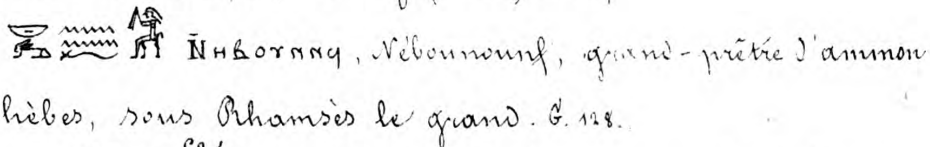 N̄ⲏⲃⲟⲩⲛⲛϥ, Nébounounf, grand-prêtre d'ammon
hèbes, sous Rhamsès le grand. G. 128.